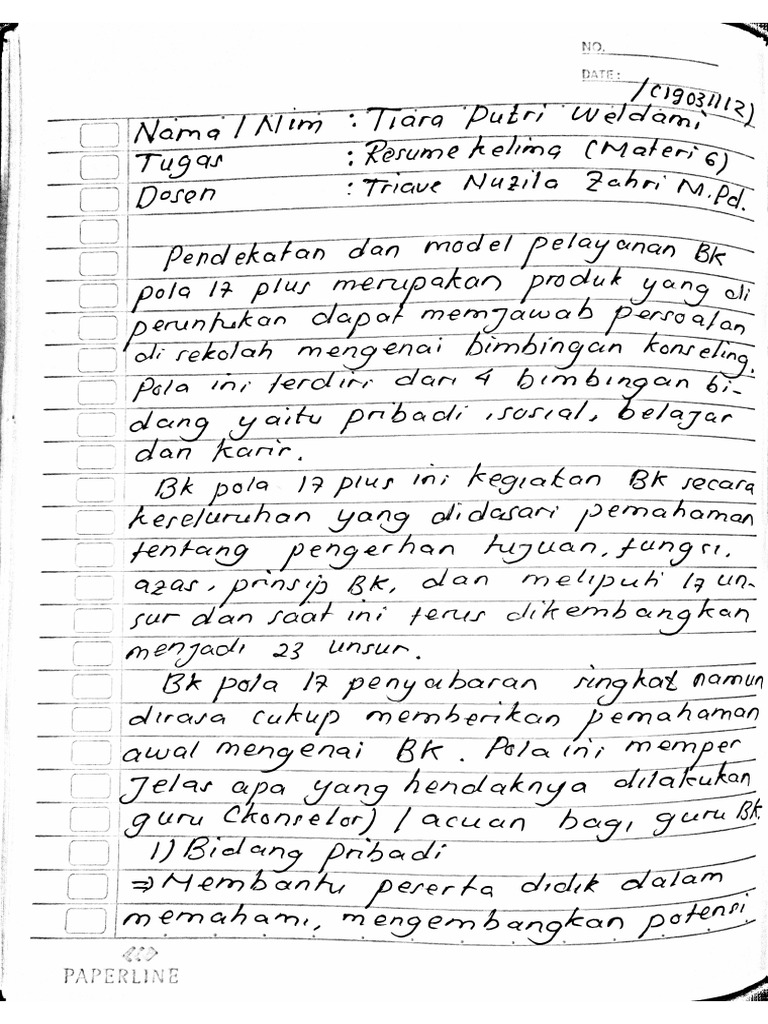 NO.
DATE:
/(19031112)
Nama / Nim : Tiara Putri Weldami
Tugas : Resume kelima (Materi 6)
Dosen : Triave Nuzila Zahri M.Pd.
Pendekatan dan model pelayanan BK
pola 17 plus merupakan produk yang di
peruntukan dapat memjawab persoalan
di sekolah mengenai bimbingan konseling.
Pola ini terdiri dari 4 bimbingan bi-
dang yaitu pribadi, sosial, belajar
dan karir.
Bk pola 17 plus ini kegiatan BK secara
keseluruhan yang didasari pemahaman
tentang pengerhan tujuan, fungsi,
azas, prinsip BK, dan meliputi 17 un-
sur dan saat ini terus dikembangkan
menjadi 23 unsur.
Bk pola 17 penyabaran singkat namun
dirasa cukup memberikan pemahaman
awal mengenai BK. Pola ini memper
jelas apa yang hendaknya dilakukan
guru (konselor) / acuan bagi guru BK.
1) Bidang pribadi
⇒ Membantu peserta didik dalam
memahami, mengembangkan potensi
PAPERLINE